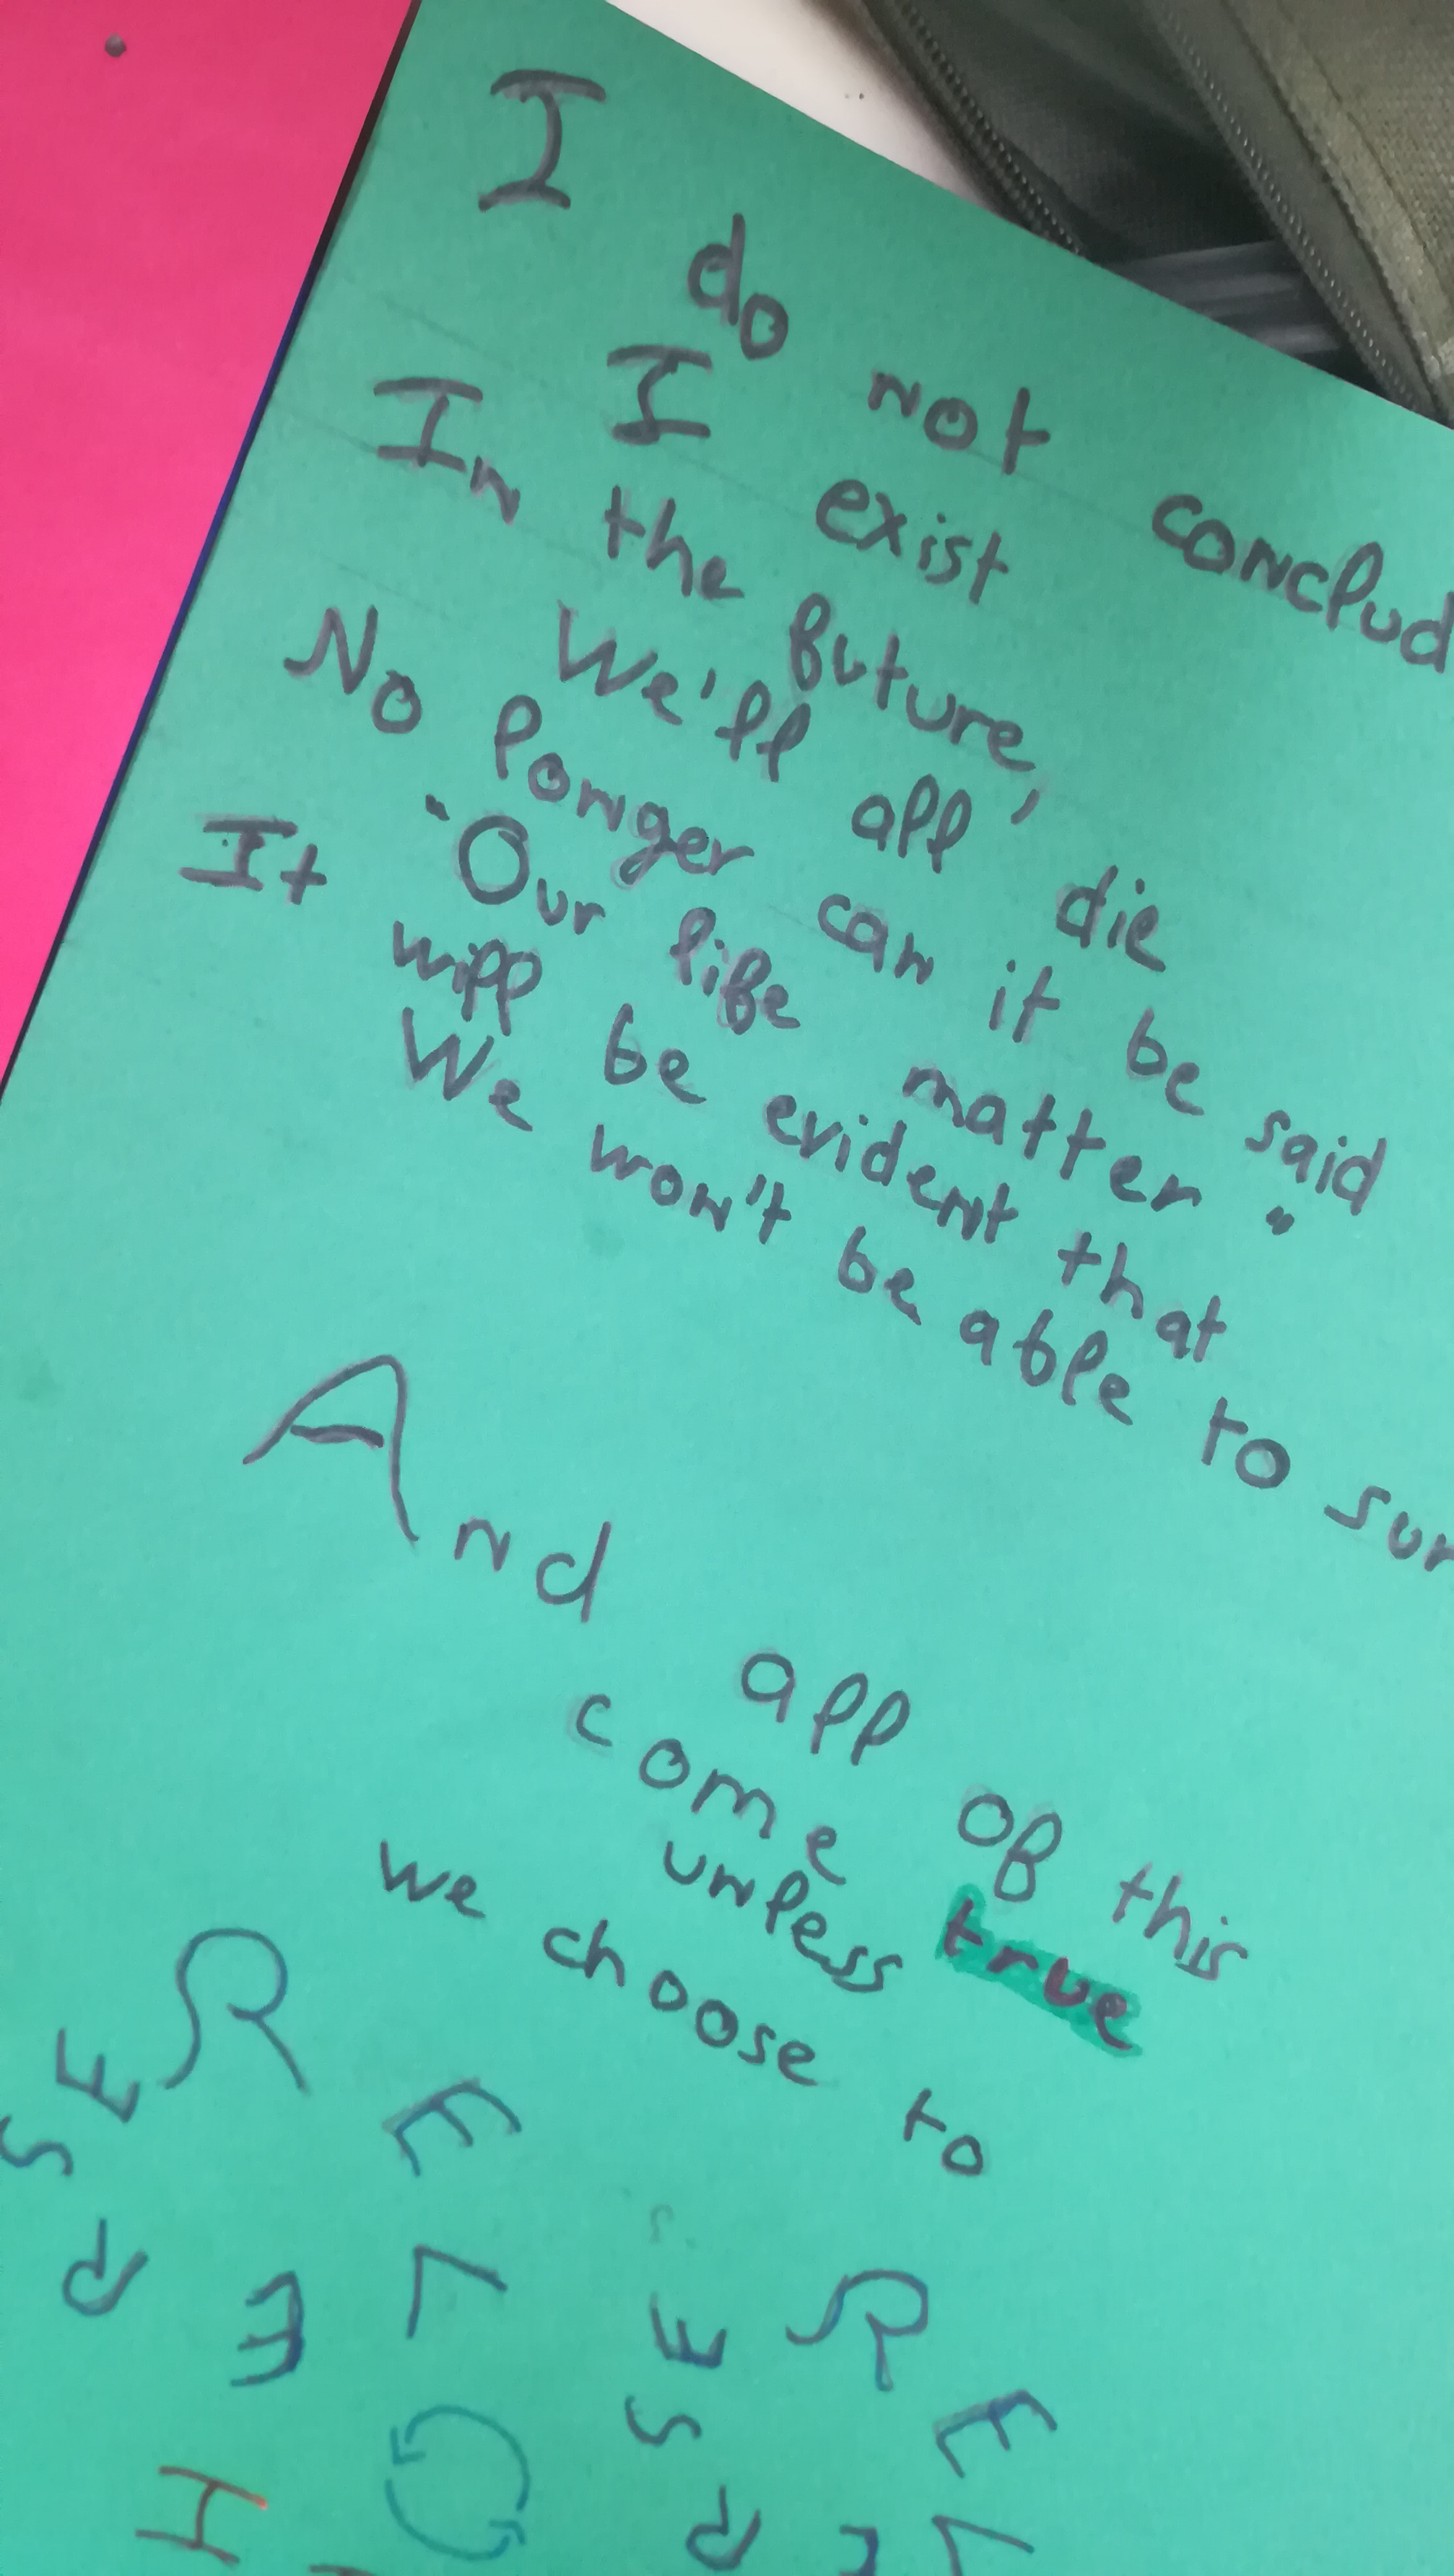 I do not conclud
I exist
In the future,
We'll all die
No longer can it be said
"Our life matter"
It will be evident that
We won't be able to sur
And all of this
come true
unless
we choose to
REVERSE
REVERSE